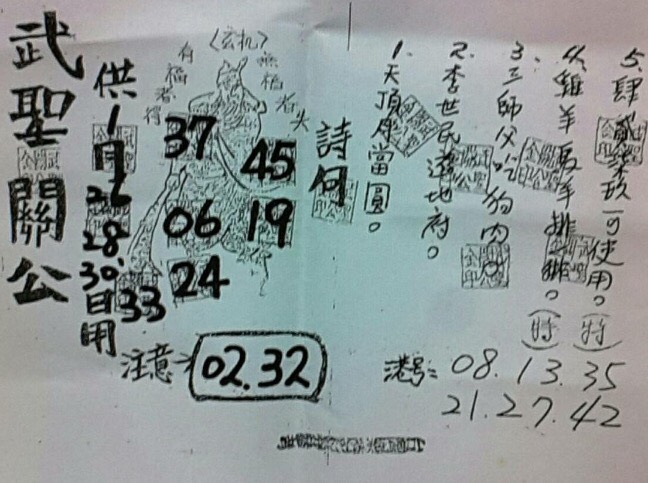 武聖關公
供1月26.28.30.日用
〈玄机〉
有福者得
無福者失
37
45
06
19
24
33
注意>
02.32
詩句
1.天頂座當圓。
2.李世民遊地府。
3.三師父吃狗肉。
4.雞羊馬羊排排。(特)
5.肆貳柒玖可使用。(特)
港号:08.13.35
21.27.42